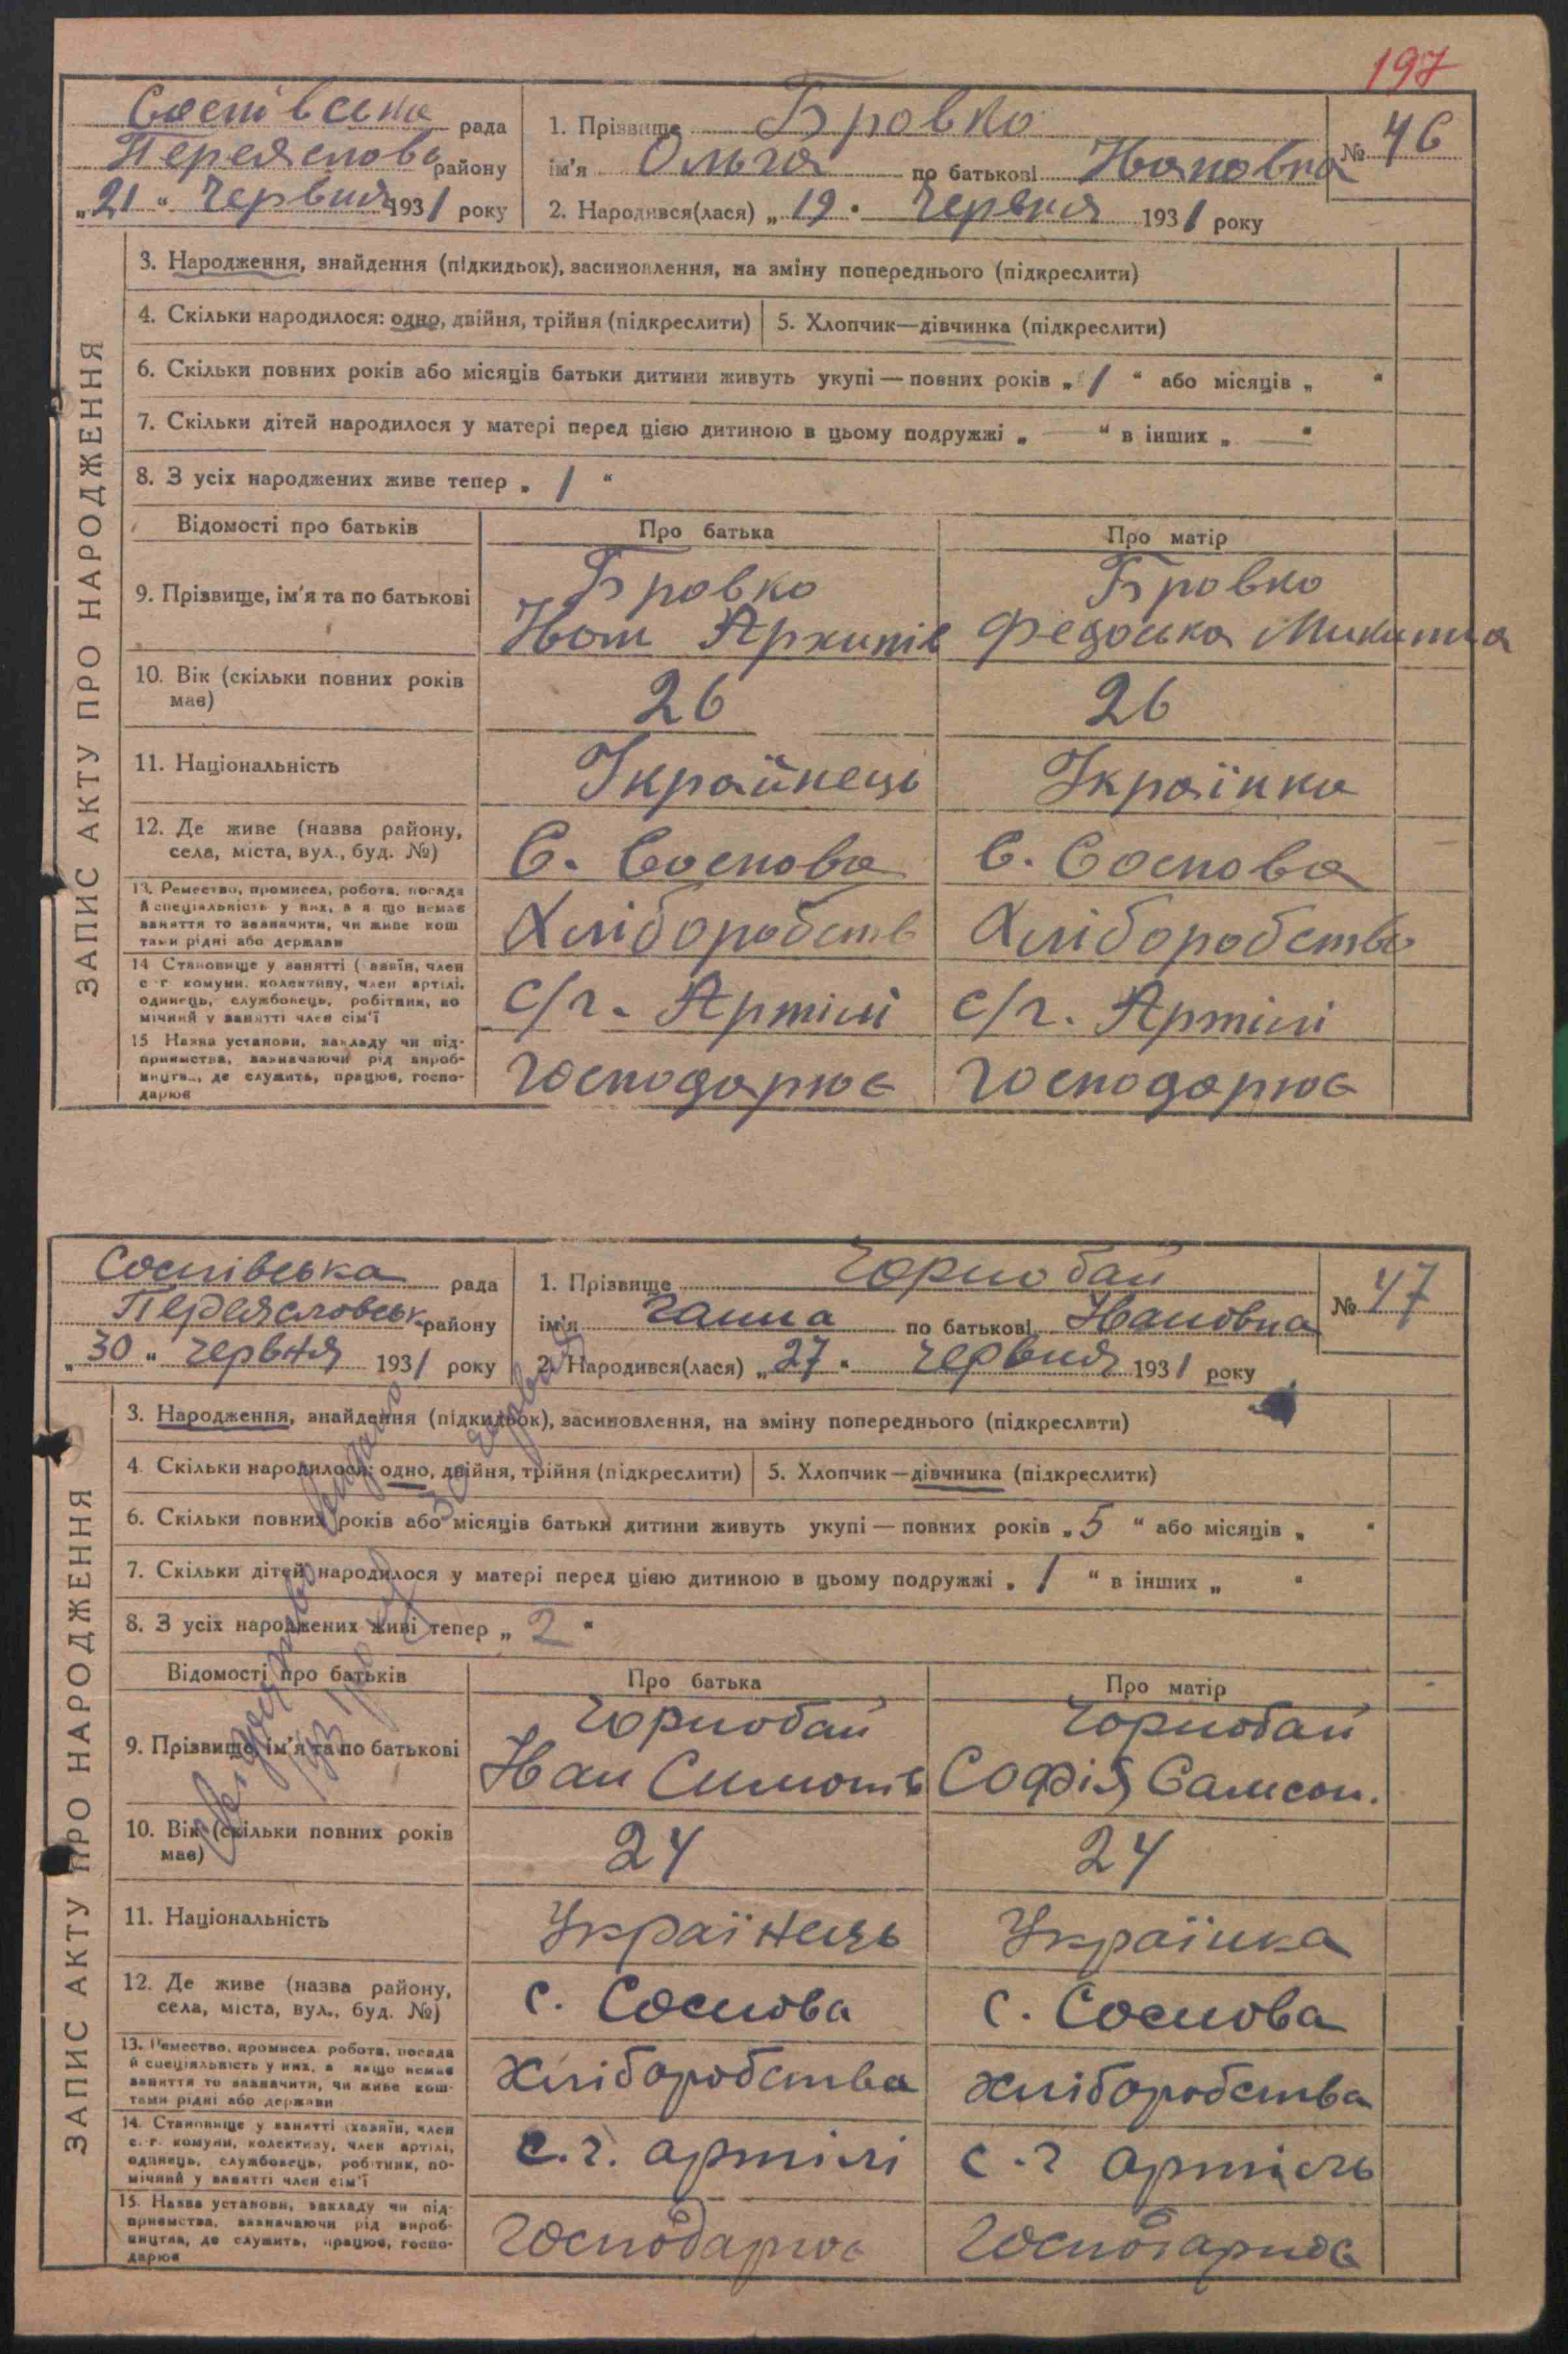 197
Соснівська рада
Переясловс району
„21“ Червня 1931 року
1. Прізвище Бровко
ім'я Ольга по батькові Івановна
№ 46
2. Народився(лася) „19“ Червня 1931 року
ЗАПИС АКТУ ПРО НАРОДЖЕННЯ
3. Народження, знайдення (підкидьок), засиновлення, на зміну попереднього (підкреслити)
4. Скільки народилося: одно, двійня, трійня (підкреслити)
5. Хлопчик—дівчинка (підкреслити)
6. Скільки повних років або місяців батьки дитини живуть укупі — повних років „1“ або місяців „ “
7. Скільки дітей народилося у матері перед цією дитиною в цьому подружжі „—“ в інших „—“
8. З усіх народжених живе тепер „1“
Відомості про батьків Про батька Про матір
9. Прізвище, ім'я та по батькові
Бровко
Архипів
Бровко
Федоська
10. Вік (скільки повних років має)
26
26
11. Національність
Українець
Українка
12. Де живе (назва району, села, міста, вул., буд. №)
С. Соснова
С. Соснова
13. Ремество, промисел, робота, посада й спеціяльність у них, а якщо немає заняття то зазначити, чи живе коштами рідні або держави
Хліборобств
Хліборобство
14 Становище у занятті (хазяїн, член с.-г. комуни, колективу, член артілі, одинець, службовець, робітник, помічний у занятті член сім'ї
с/г. Артілі
с/г. Артілі
15 Назва установи, закладу чи підприємства, зазначаючи рід виробництва, де служить, працює, господарює
Господарює
Господарює
Соснівська рада
Переясловськ району
„30“ червня 1931 року
1. Прізвище Чорнобай
ім'я Ганна по батькові Івановна
№ 47
2. Народився(лася) „27“ червня 1931 року
ЗАПИС АКТУ ПРО НАРОДЖЕННЯ
3. Народження, знайдення (підкидьок), засиновлення, на зміну попереднього (підкреслити)
4. Скільки народилося: одно, двійня, трійня (підкреслити)
5. Хлопчик—дівчинка (підкреслити)
6. Скільки повних років або місяців батьки дитини живуть укупі — повних років „5“ або місяців „ “
7. Скільки дітей народилося у матері перед цією дитиною в цьому подружжі „1“ в інших „ “
8. З усіх народжених живі тепер „2“
Відомості про батьків Про батька Про матір
9. Прізвище, ім'я та по батькові
Чорнобай
Іван
Чорнобай
Софія Самсон.
10. Вік (скільки повних років має)
24
24
11. Національність
Українець
Українка
12. Де живе (назва району, села, міста, вул., буд. №)
с. Соснова
с. Соснова
13. Ремество, промисел, робота, посада й спеціяльність у них, а якщо немає заняття то зазначити, чи живе коштами рідні або держави
Хліборобства
хліборобства
14. Становище у занятті (хазяїн, член с.-г. комуни, колективу, член артілі, одинець, службовець, робітник, помічний у занятті член сім'ї
с.г. артілі
с.г артіль
15. Назва установи, закладу чи підприємства, зазначаючи рід виробництва, де служить, працює, господарює
Господарює
Господарює